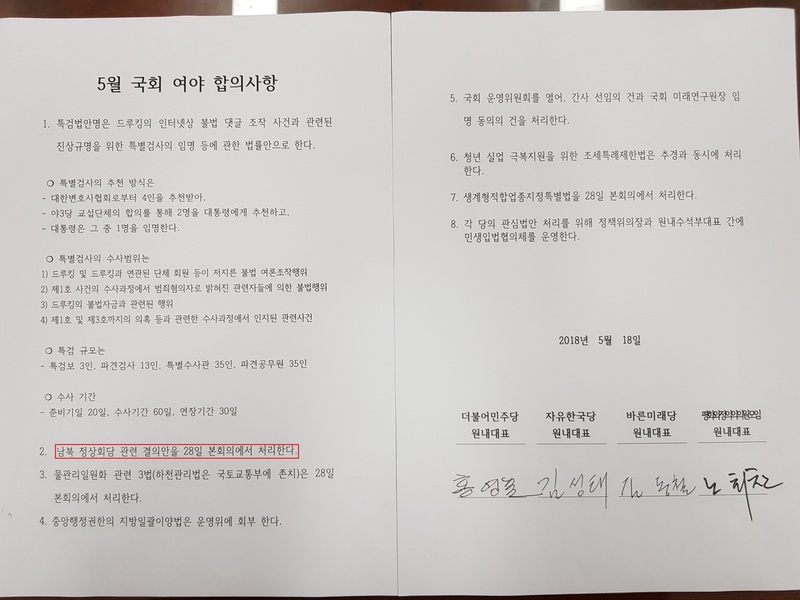 5월 국회 여야 합의사항
1. 특검법안명은 드루킹의 인터넷상 불법 댓글 조작 사건과 관련된
진상규명을 위한 특별검사의 임명 등에 관한 법률안으로 한다.
❍ 특별검사의 추천 방식은
- 대한변호사협회로부터 4인을 추천받아,
- 야3당 교섭단체의 합의를 통해 2명을 대통령에게 추천하고,
- 대통령은 그 중 1명을 임명한다.
❍ 특별검사의 수사범위는
1) 드루킹 및 드루킹과 연관된 단체 회원 등이 저지른 불법 여론조작행위
2) 제1호 사건의 수사과정에서 범죄혐의자로 밝혀진 관련자들에 의한 불법행위
3) 드루킹의 불법자금과 관련된 행위
4) 제1호 및 제3호까지의 의혹 등과 관련한 수사과정에서 인지된 관련사건
❍ 특검 규모는
- 특검보 3인, 파견검사 13인, 특별수사관 35인, 파견공무원 35인
❍ 수사 기간
- 준비기일 20일, 수사기간 60일, 연장기간 30일
2. 남북 정상회담 관련 결의안을 28일 본회의에서 처리한다.
3. 물관리일원화 관련 3법(하천관리법은 국토교통부에 존치)은 28일
본회의에서 처리한다.
4. 중앙행정권한의 지방일괄이양법은 운영위에 회부 한다.
5. 국회 운영위원회를 열어, 간사 선임의 건과 국회 미래연구원장 임
명 동의의 건을 처리한다.
6. 청년 실업 극복지원을 위한 조세특례제한법은 추경과 동시에 처리
한다.
7. 생계형적합업종지정특별법을 28일 본회의에서 처리한다.
8. 각 당의 관심법안 처리를 위해 정책위의장과 원내수석부대표 간에
민생입법협의체를 운영한다.
2018년 5월 18일
더불어민주당 자유한국당 바른미래당 평화와정의의의원모임
원내대표 원내대표 원내대표 원내대표
홍영표 김성태 김동철 노회찬